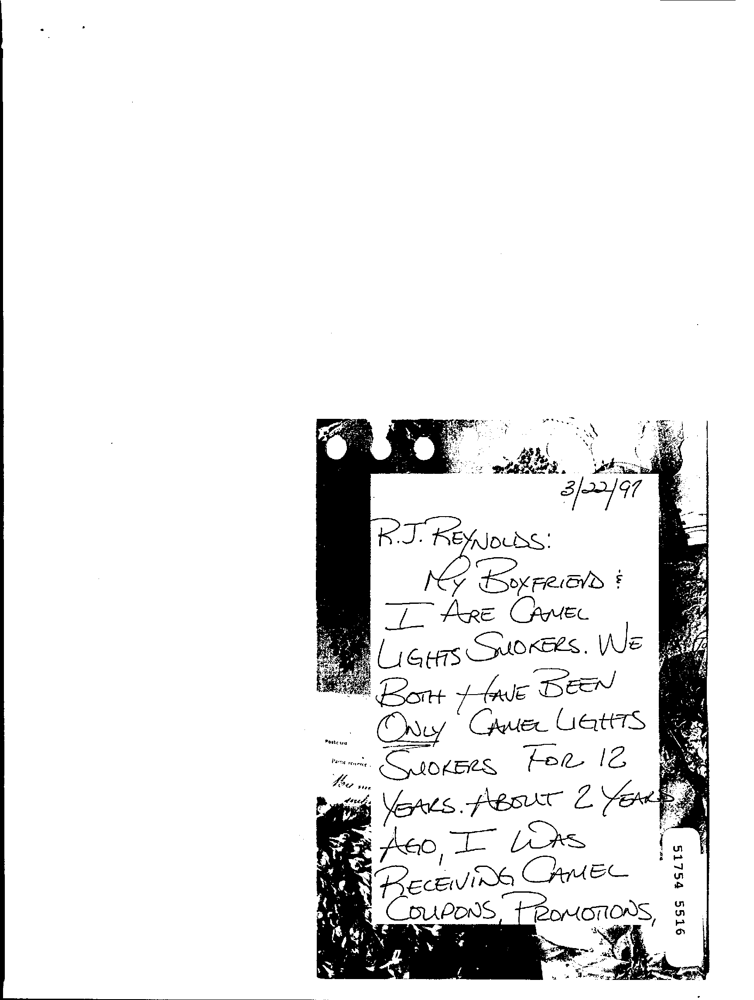 3/22/97
R.J. REYNOLDS:
MY BOYFRIEND &
I ARE CAMEL
LIGHTS SMOKERS. WE
BOTH HAVE BEEN
ONLY CAMEL LIGHTS
SMOKERS FOR 12
YEARS. ABOUT 2 YEARS
AGO, I WAS
RECEIVING CAMEL
COUPONS, PROMOTIONS,
51754 5516